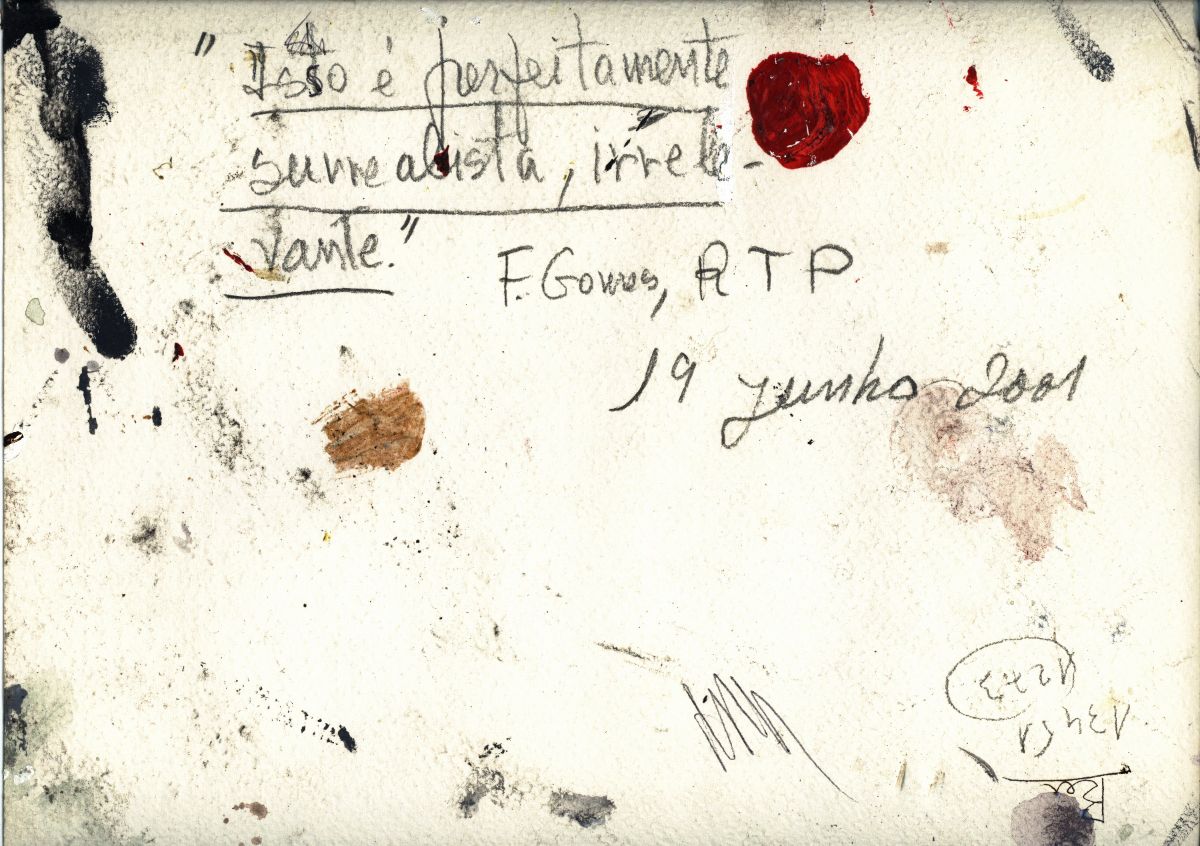 "Isso é perfeitamente
surrealista, irrele-
vante."
F. Gomes, RTP
19 junho 2001
1273
13451